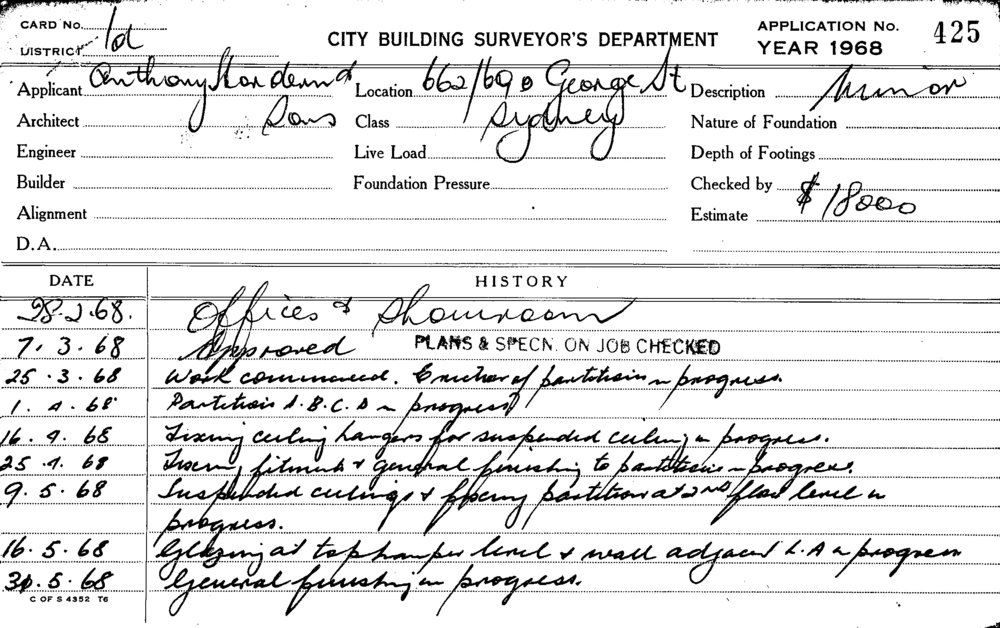 CARD No. 1d
DISTRICT
CITY BUILDING SURVEYOR'S DEPARTMENT
APPLICATION No. 425
YEAR 1968
Applicant Anthony Hordern &
Location 662/690 George St
Description Minor
Architect Sons
Class Sydney
Nature of Foundation
Engineer
Live Load
Depth of Footings
Builder
Foundation Pressure
Checked by
Alignment
Estimate $18000
D.A.
DATE HISTORY
28.2.68. Offices & Showroom
7.3.68 Approved PLANS & SPECN. ON JOB CHECKED
25.3.68 Work commenced. Erection of partitions in progress.
1.4.68 Partitions A.B.C.D in progress
16.4.68 Fixing ceiling hangers for suspended ceiling in progress.
25.4.68 Fixing fitments & general finishing to partitions in progress.
9.5.68 Suspended ceilings & fixing partition at 2nd floor level in
progress.
16.5.68 Glazing at tophamper level & wall adjacent L.A in progress
30.5.68 General finishing in progress.
C OF S 4352 T6